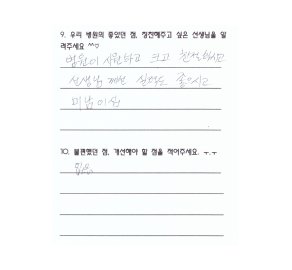 9. 우리 병원의 좋았던 점, 칭찬해주고 싶은 선생님을 알
려주세요 ^^♡
병원이 시원하고 크고 친절하시고
선생님 께선 실력도 좋으시고
미남이심
10. 불편했던 점, 개선해야 할 점을 적어주세요. ㅜㅜ
없음.